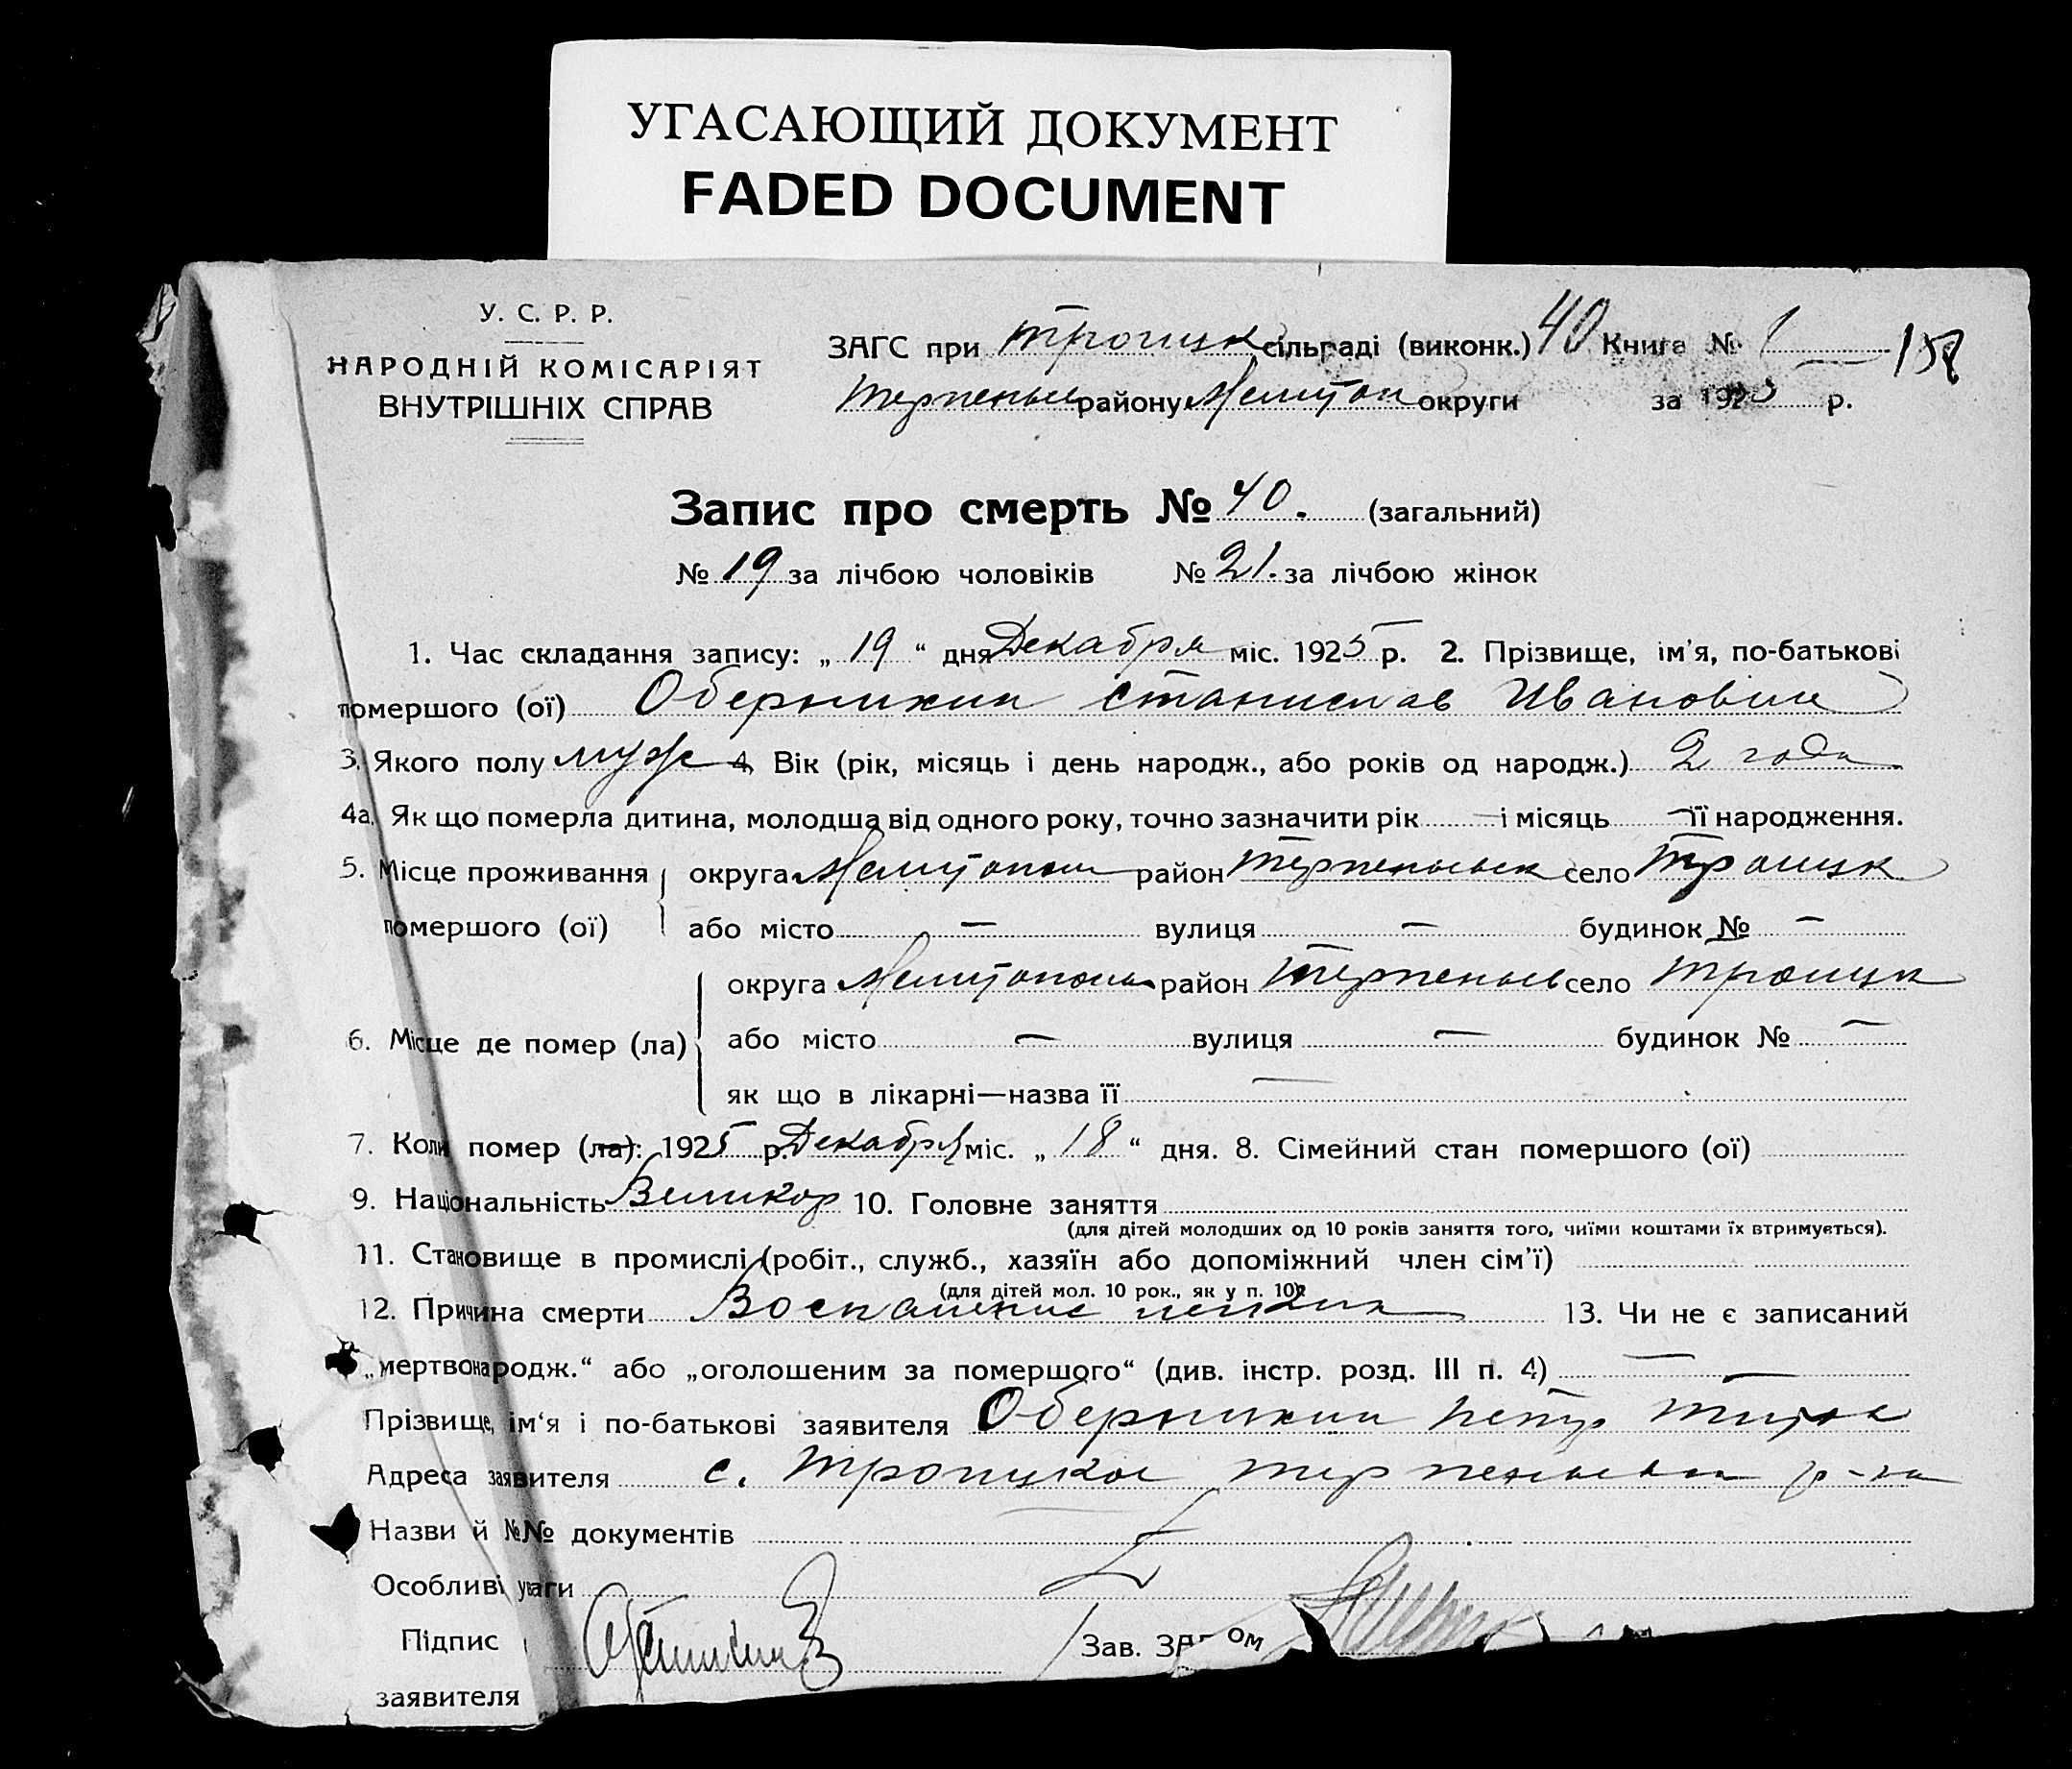 УГАСАЮЩИЙ ДОКУМЕНТ
FADED DOCUMENT
У. С. Р. Р.
НАРОДНІЙ КОМІСАРІЯТ
ВНУТРІШНІХ СПРАВ
ЗАГС при Троицк сільраді (виконк.) 40 Книга № 1
району Мелитоп округи за 1925 р.
Запис про смерть № 40. (загальний)
№ 19 за лічбою чоловіків № 21. за лічбою жінок
1. Час складання запису: „ 19 “ дня Декабря міс. 1925 р. 2. Прізвище, ім'я, по-батькові
помершого (ої) Оберникин Станислав Иванович
3. Якого полу муж 4. Вік (рік, місяць і день народж., або років од народж.) 2 года
4а. Як що померла дитина, молодша від одного року, точно зазначити рік — і місяць — її народження.
5. Місце проживання округа район село Троицк
помершого (ої) або місто — вулиця — будинок № —
округа район село Троицк
6. Місце де помер (ла) або місто — вулиця — будинок № —
як що в лікарні—назва її —
7. Коли помер (ла): 1925 р. Декабря міс. „ 18 “ дня. 8. Сімейний стан помершого (ої)
9. Національність Великор 10. Головне заняття
(для дітей молодших од 10 років заняття того, чиїми коштами їх втримується).
11. Становище в промислі (робіт., служб., хазяїн або допоміжний член сім'ї)
(для дітей мол. 10 рок., як у п. 10)
12. Причина смерти Воспаление легких 13. Чи не є записаний
„мертвонародж.“ або „оголошеним за помершого“ (див. інстр. розд. III п. 4) —
Прізвище, ім‘я і по-батькові заявителя Оберникин Петр
Адреса заявителя с. Троицкое р-на
Назви й №№ документів
Особливі уваги
Підпис Зав. ЗАГСом
заявителя